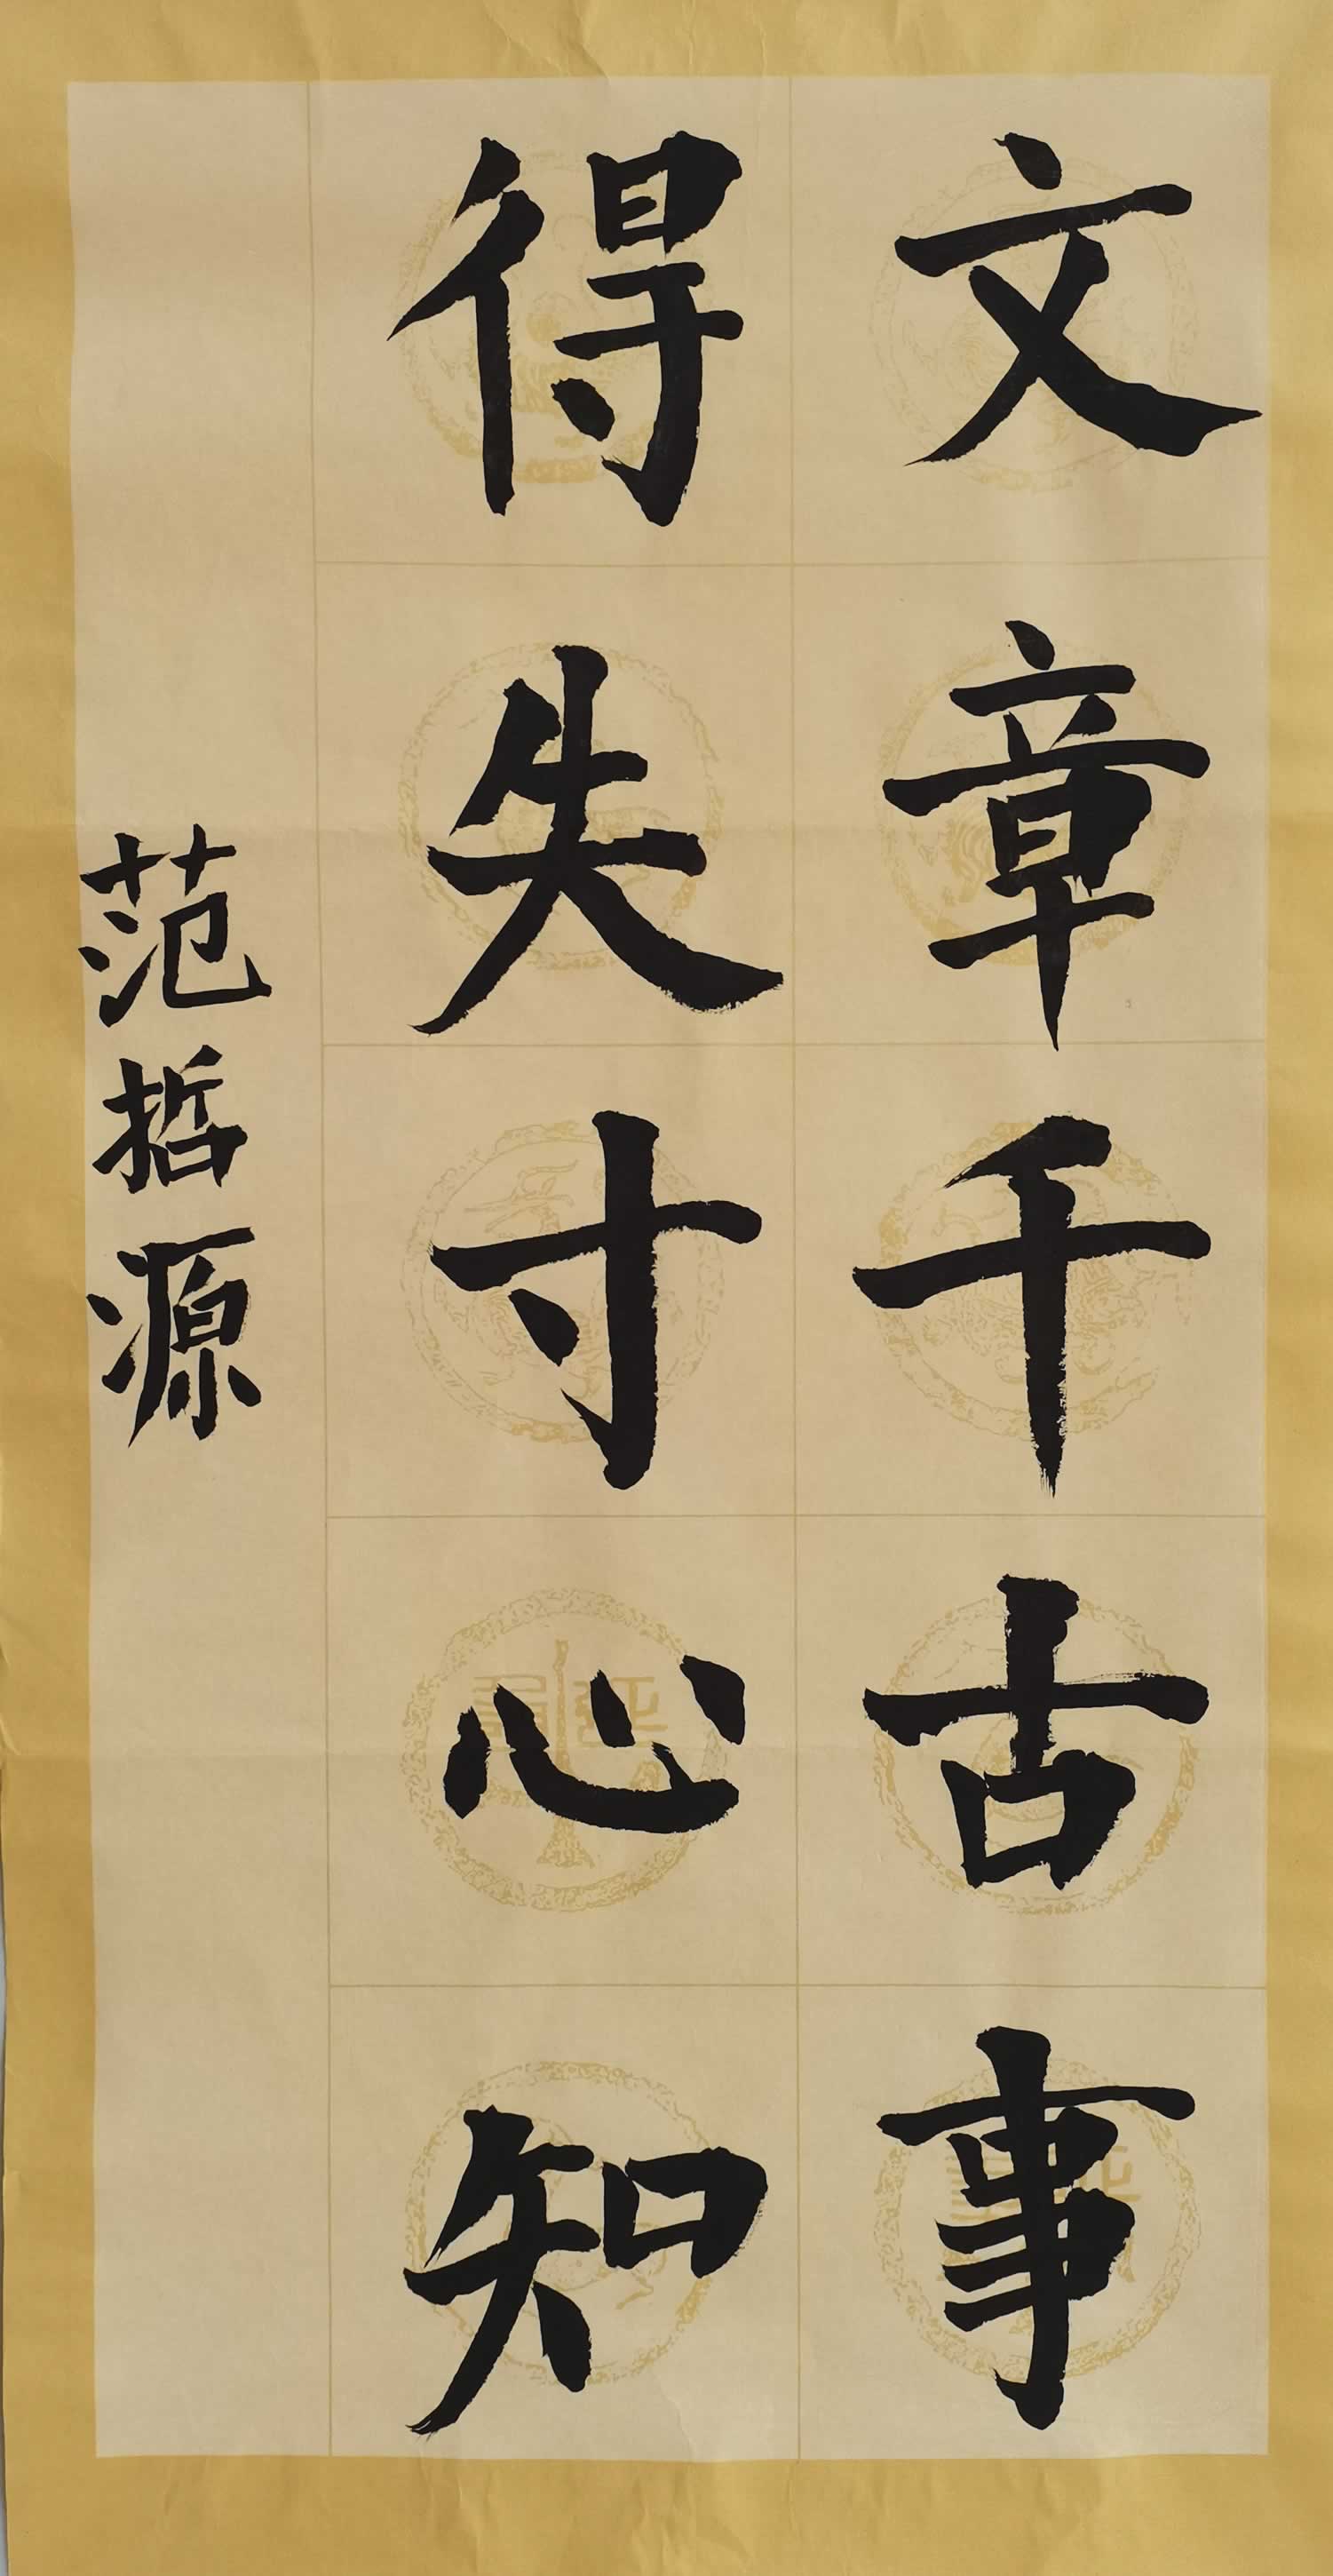 文章千古事
得失寸心知
范哲源